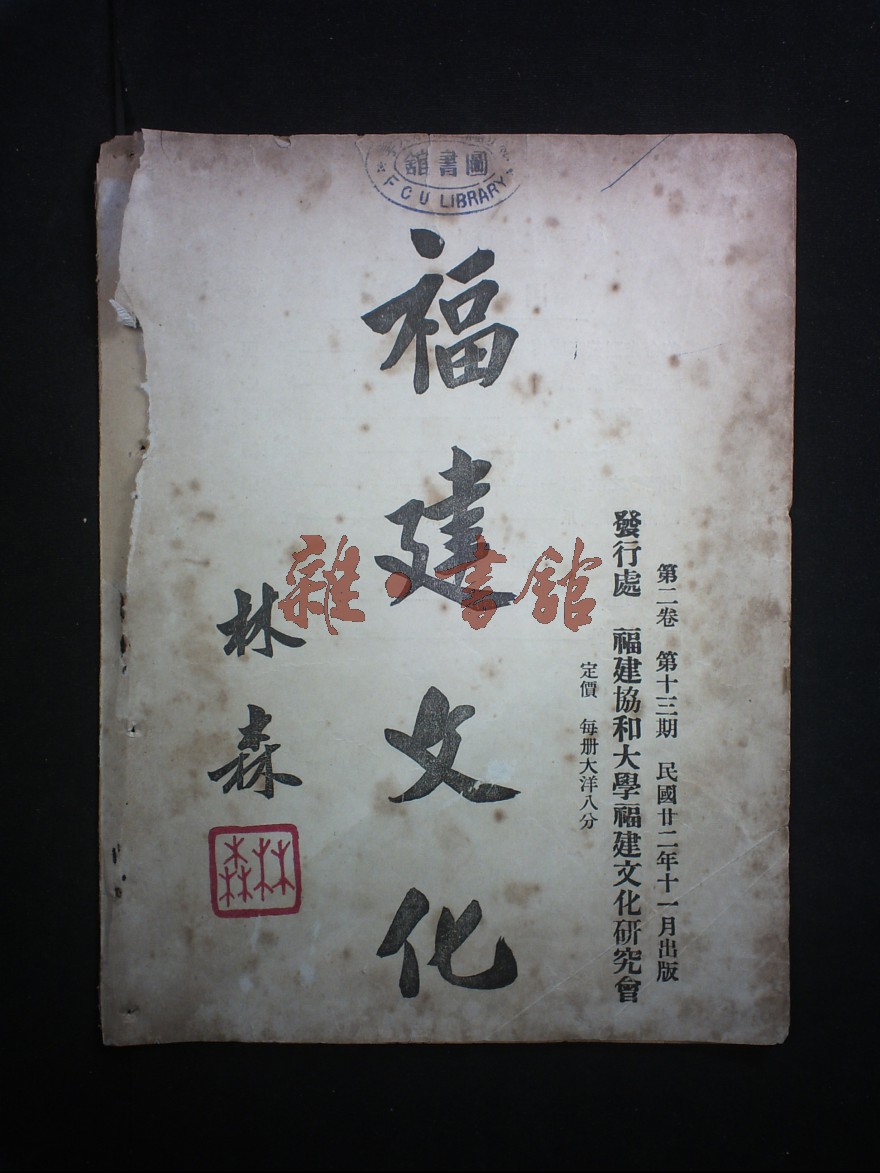 圖書館
FCU LIBRARY
第二卷 第十三期 民國廿二年十一月出版
發行處 福建協和大學福建文化研究會
定價 每册大洋八分
福建文化
林森
林森
雜·書館